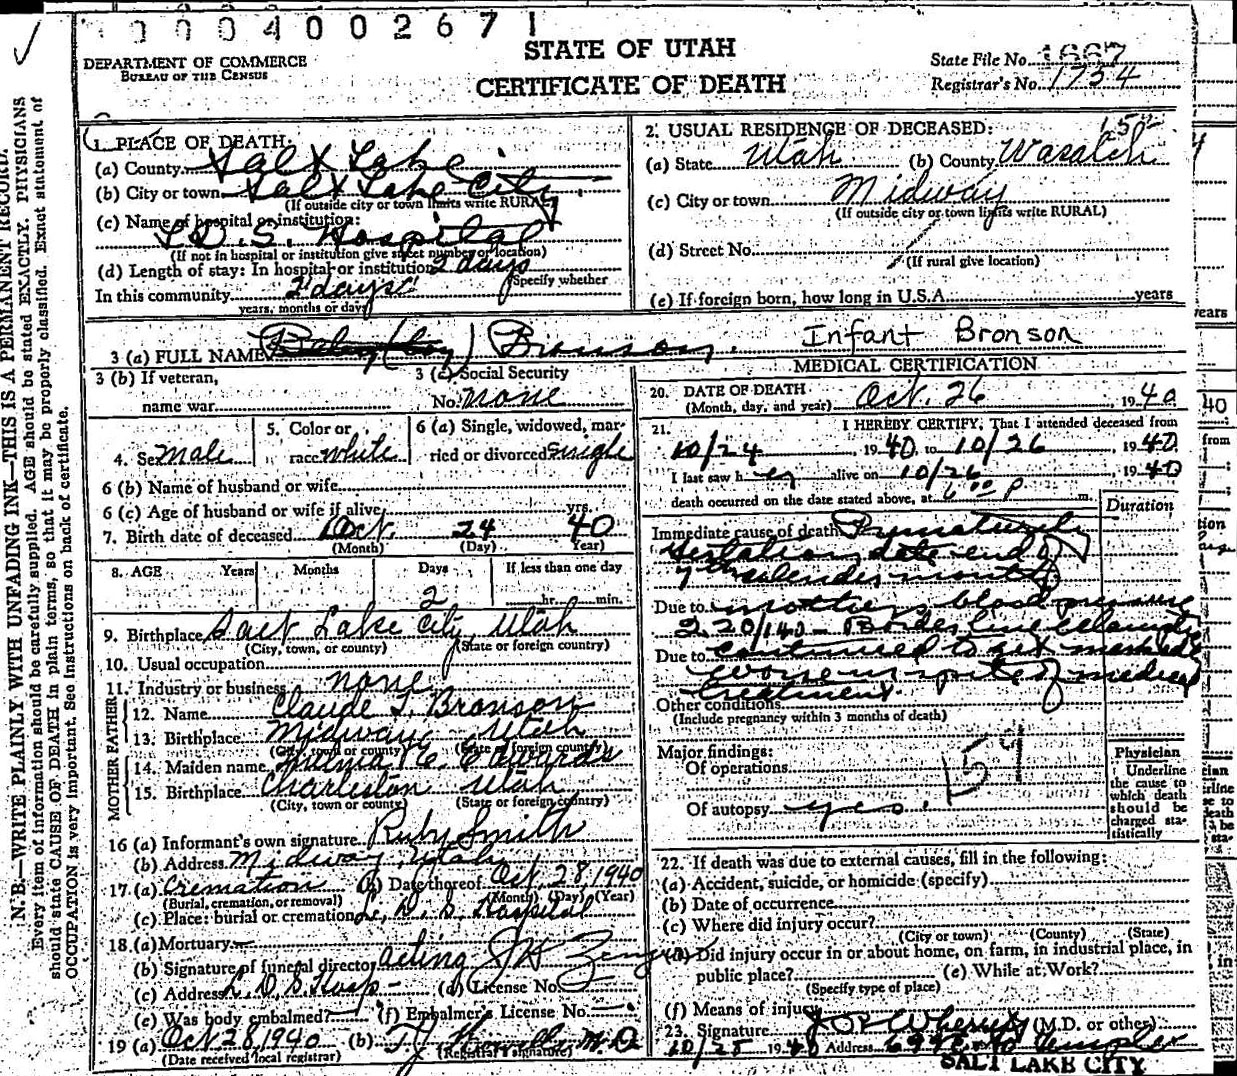 0 0 0 4 0 0 2 6 7 1
DEPARTMENT OF COMMERCE
BUREAU OF THE CENSUS
STATE OF UTAH
CERTIFICATE OF DEATH
State File No. 1667
Registrar's No. 1734
N. B.—WRITE PLAINLY WITH UNFADING INK—THIS IS A PERMANENT RECORD.
Every item of information should be carefully supplied. AGE should be stated EXACTLY. PHYSICIANS
should state CAUSE OF DEATH in plain terms, so that it may be properly classified. Exact statement of
OCCUPATION is very important. See instructions on back of certificate.
1. PLACE OF DEATH:
(a) County Salt Lake
(b) City or town Salt Lake City
(If outside city or town limits write RURAL)
(c) Name of hospital or institution:
L.D.S. Hospital
(If not in hospital or institution give street number or location)
(d) Length of stay: In hospital or institution 2 days
(Specify whether
In this community 2 days
years, months or days)
2. USUAL RESIDENCE OF DECEASED:
(a) State Utah (b) County Wasatch
(c) City or town Midway
(If outside city or town limits write RURAL)
(d) Street No.
(If rural give location)
(e) If foreign born, how long in U.S.A. years
3 (a) FULL NAME Baby (boy) Bronson. Infant Bronson
3 (b) If veteran,
name war
3 (c) Social Security
No. none
4. Sex male
5. Color or
race white
6 (a) Single, widowed, mar-
ried or divorced single
6 (b) Name of husband or wife
6 (c) Age of husband or wife if alive yrs.
7. Birth date of deceased Oct. 24 40
(Month) (Day) (Year)
8. AGE Years Months Days If less than one day
2 hr. min.
9. Birthplace Salt Lake City, Utah
(City, town, or county) (State or foreign country)
10. Usual occupation
11. Industry or business none
FATHER
12. Name Claude T. Bronson
13. Birthplace Midway Utah
(City, town or county) (State or foreign country)
MOTHER
14. Maiden name Edwards
15. Birthplace Charleston Utah
(City, town or county) (State or foreign country)
16 (a) Informant's own signature Ruby Smith
(b) Address Midway, Utah
17. (a) Cremation (b) Date thereof Oct. 28, 1940
(Burial, cremation, or removal) (Month) (Day) (Year)
(c) Place: burial or cremation L. D. S. Hospital
18. (a) Mortuary
(b) Signature of funeral director acting
(c) Address L. D. S. Hosp (d) License No.
(e) Was body embalmed? (f) Embalmer's License No.
19 (a) Oct 28, 1940 (b) M. D.
(Date received local registrar) (Registrar's signature)
MEDICAL CERTIFICATION
20. DATE OF DEATH
(Month, day, and year) Oct. 26 1940
21. I HEREBY CERTIFY, That I attended deceased from
10/24, 1940, to 10/26, 1940.
I last saw h alive on 10/26, 1940
death occurred on the date stated above, at 6:00 P m.
Duration
Immediate cause of death Prematurely
Gestation date end of
7 calendar months
Due to mothers blood pressure
220/140 - Borderline eclamptic
Due to continued to get markedly
worse in spite of medical
treatment.
Other conditions
(Include pregnancy within 3 months of death)
Major findings:
Of operations
Of autopsy yes.
159
Physician
Underline
the cause to
which death
should be
charged sta-
tistically
22. If death was due to external causes, fill in the following:
(a) Accident, suicide, or homicide (specify)
(b) Date of occurrence
(c) Where did injury occur?
(City or town) (County) (State)
(d) Did injury occur in or about home, on farm, in industrial place, in
public place? (e) While at Work?
(Specify type of place)
(f) Means of injury
23. Signature (M.D. or other)
1940 Address
SALT LAKE CITY